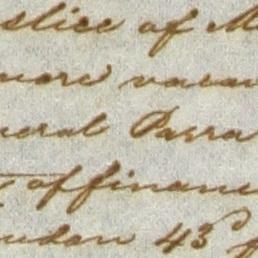 slice of M
more vacan
neral Parra
of finance
43